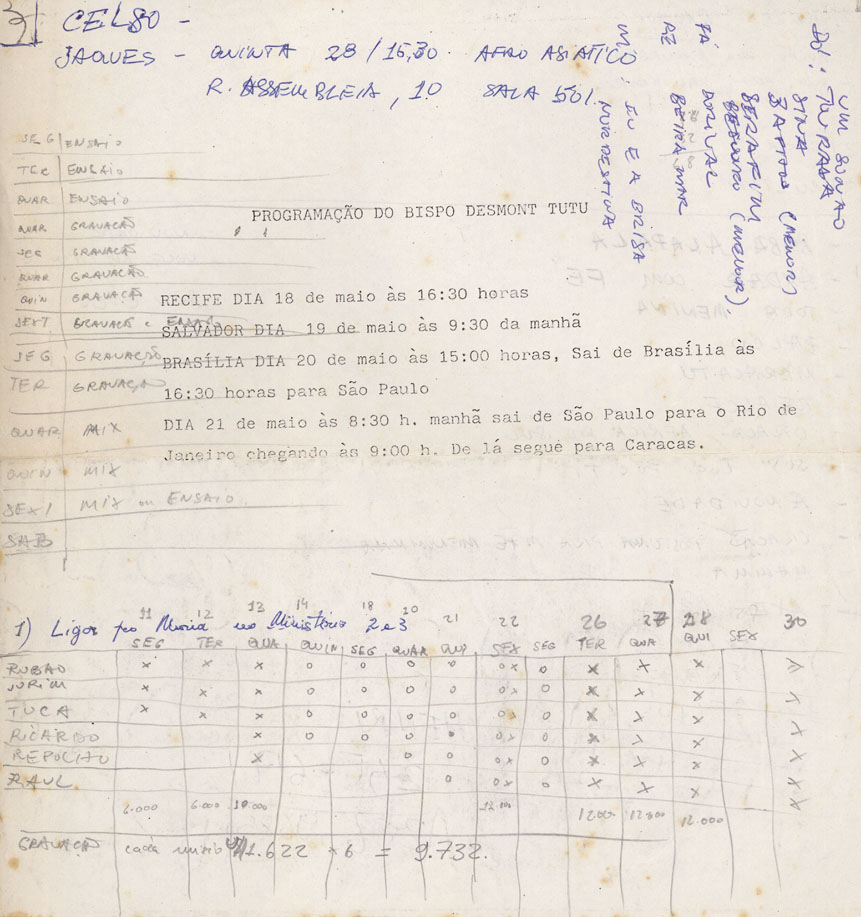 CELSO -
JAQUES - QUINTA 28/15,30. AFRO ASIATICO
R. ASSEMBLEIA, 10 SALA 501.
UM SONHO
DÓ: TURANA
SINA
ZAPTOU (MENOR)
SERAFIM
(MELHOR).
FÁ DORIVAL
RÉ BEIRA MAR
MI: EU E A BRISA
NORDESTINA
SEG ENSAIO
TER ENSAIO
QUAR ENSAIO
QUAR GRAVAÇÃO
SEG GRAVAÇÃO
QUAR GRAVACÃO
QUIN GRAVAÇÃO
SEXT GRAVAÇÃO E ENSAIO
SEG GRAVAÇÃO
TER GRAVAÇÃO
QUAR MIX
QUIN MIX
SEXT MIX ou ENSAIO.
SAB
PROGRAMAÇÃO DO BISPO DESMONT TUTU
RECIFE DIA 18 de maio às 16:30 horas
SALVADOR DIA 19 de maio às 9:30 da manhã
BRASÍLIA DIA 20 de maio às 15:00 horas, Sai de Brasília às
16:30 horas para São Paulo
DIA 21 de maio às 8:30 h. manhã sai de São Paulo para o Rio de
Janeiro chegando às 9:00 h. De lá segue para Caracas.
1) Ligar pro no Ministério 2e3
11 12 13 14 18 20 21 22 26 27 28 30
SEG TER QUA QUIN SEG QUAR QUI SEX SEG TER QUA QUI SEX
RUBÃO x x x o o o o ox o x x x
JURIM x x x o o o o ox o x x x x
TUCA x x x o o o o ox o x x x x
RICARDO x o o o o ox o x x x x
REPOLHO x o o ox o x x x x
RAUL o ox o x x x x
6.000 6.000 10.000 12.000 12.000 12.000 12.000
GRAVAÇÃO cada músico 1.622 x 6 = 9.732.